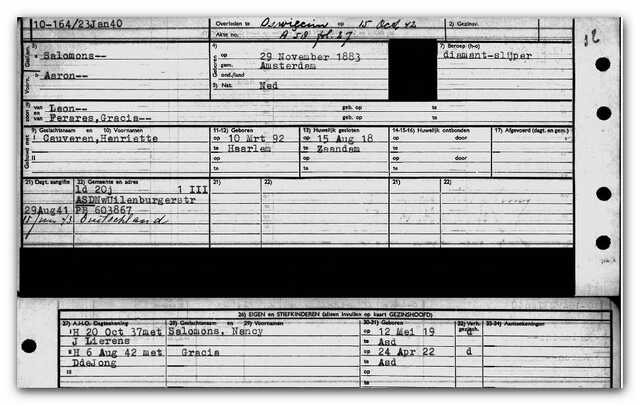 10-164/23Jan40 Overleden te Oswiecim op 15 Oct 42 2) Gezinov.
Akte no. A 58 fol. 27
3) 4) 7) Beroep (h-o)
Salomons-- op 29 November 1883 diamant-slijper
te Amsterdam
Aaron-- ond./land
5) Nat. Ned
van Leon-- geb. op te
en van Perares, Gracia-- geb. op te
9) Geslachtsnaam en 10) Voornamen 11-12) Geboren 13) Huwelijk gesloten 14-15-16) Huwelijk ontbonden 17) Afgevoerd (dagt. en gem.)
I Gauveren, Henriette op 10 Mrt 92 op 15 Aug 18 op door
te Haarlem te Zaandam te
II op op op door
te te te
21) Dagt. aangifte 22) Gemeente en adres 21) 22) 21) 22)
ld 20j 1 III
ASDNwUilenburgerstr
29Aug41 PB 603867
Duitschland
26) EIGEN en STIEFKINDEREN (alleen invullen op kaart GEZINSHOOFD)
27) A.H.O. Dagteekening 28) Geslachtsnaam en 29) Voornamen 30-31) Geboren 32) Verh. gezinsh. 33-34) Aanteekeningen
H 20 Oct 37met Salomons, Nancy op 12 Mei 19 d
J Lierens te Asd
H 6 Aug 42 met Gracia op 24 Apr 22 d
DdeJong te Asd
III op